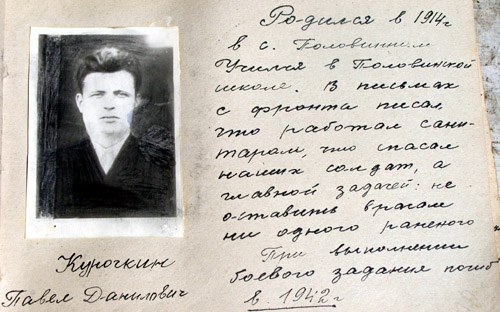 Родился в 1914г
в с. Половинном
Учился в Половинской
школе. В письмах
с фронта писал,
что работал сани-
таром, что спасал
наших солдат, а
главной задачей: не
оставить врагам
ни одного раненого
При выполнении
боевого задания погиб
в 1942г
Курочкин
Павел Данилович